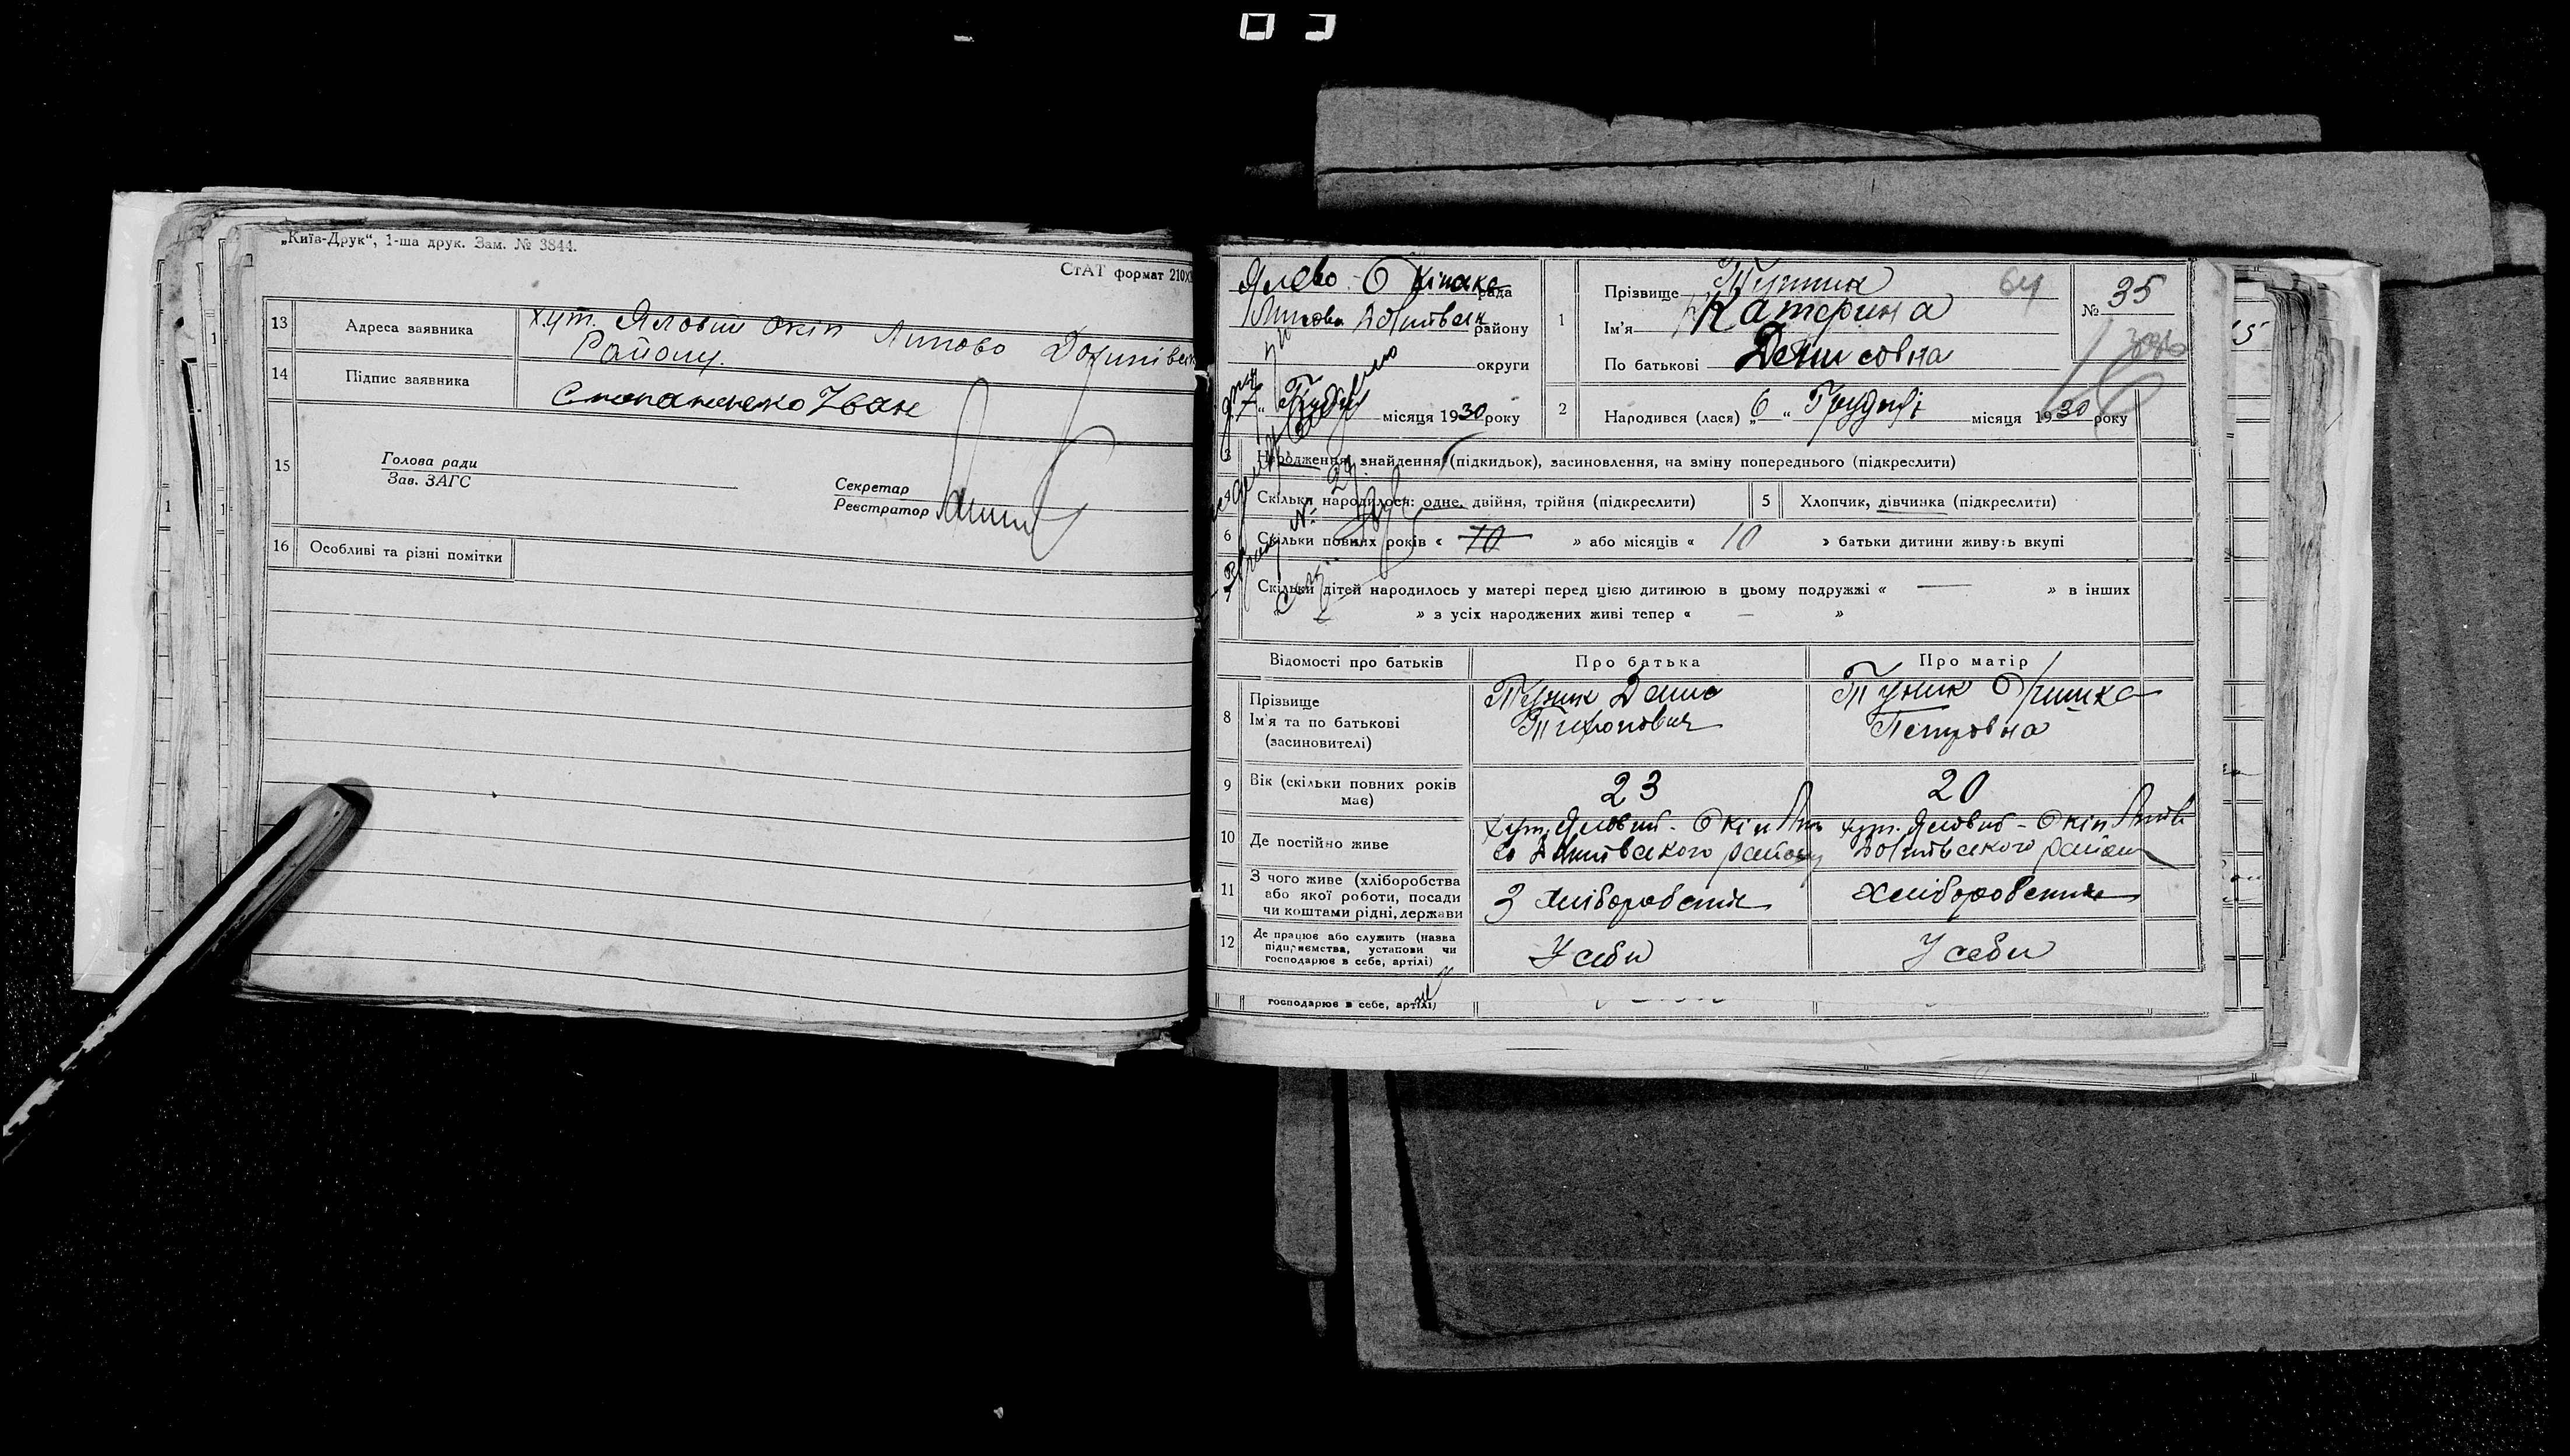 „Київ-Друк“, 1-ша друк. Зам. № 3844.
СтАТ формат 210
13 Адреса заявника хут. Яловий Окіп Липово Долинівськ
Району.
14 Підпис заявника Степаненко Іван
15 Голова ради
Зав. ЗАГС
Секретар
Реєстратор
16 Особливі та різні помітки
Ялово-Окіпска рада
району
округи
7 „ Грудня місяця 1930 року
1 Прізвище 64
Ім'я Катерина
По батькові Денисовна
№ 35
2 Народився (лася) „ 6 “ Грудня місяця 1930 року
3 Народження, знайдення (підкидьок), засиновлення, на зміну попереднього (підкреслити)
4 Скільки народилося: одне, двійня, трійня (підкреслити) 5 Хлопчик, дівчинка (підкреслити)
6 Скільки повних років « 10 » або місяців « 10 » батьки дитини живуть вкупі
7 Скільки дітей народилось у матері перед цією дитиною в цьому подружжі « — » в інших
» з усіх народжених живі тепер « — »
Відомості про батьків Про батька Про матір
8 Прізвище
Ім'я та по батькові
(засиновителі)
Денис
Тихонович
Оришка
Петровна
9 Вік (скільки повних років має) 23 20
10 Де постійно живе
хут. Яловий-Окіп Лип хут. Яловий-Окіп
району району
11 З чого живе (хліборобства
або якої роботи, посади
чи коштами рідні, держави
З хліборобства хліборобства
12 Де працює або служить (назва
підприємства, установи чи
господарює в себе, артілі)
У себи У себи
господарює в себе, артілі)